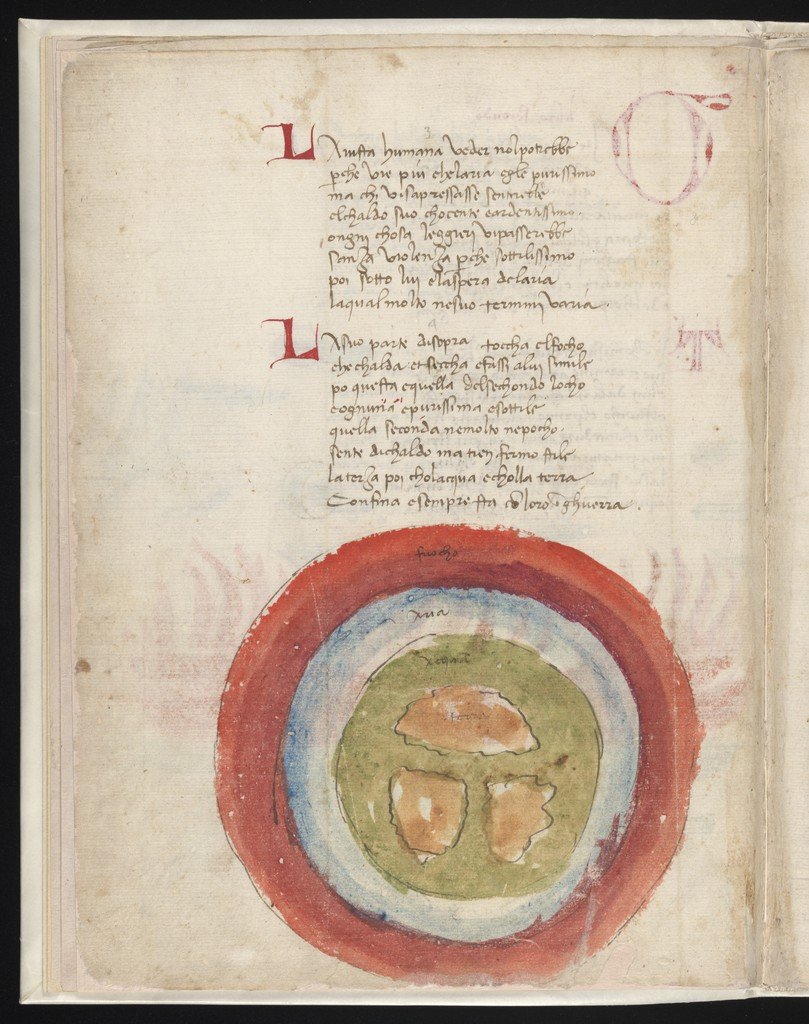 LA vista humana veder nol potrebbe
perche vie piu che laria egle purissimo
ma chi visapressasse sentirebbe
elchaldo suo chocente eardentissimo
ongni chosa leggieri vipasserebbe
sanza violenza perche sottilissimo
poi sotto lui elaspera delaria
laqual molto nesuo termini varia
LA suo parte disopra toccha elfocho
che chalda et seccha efassi alui simile
po questa equella delsechondo locho
eognuna epurissima esottile
quella seconda nemolto nepocho
sente dichaldo ma tien fermo stile
laterza poi cholacqua echolla terra
Confina esempre sta co loro ghuerra
fuocho
Aria
Acqua
terra